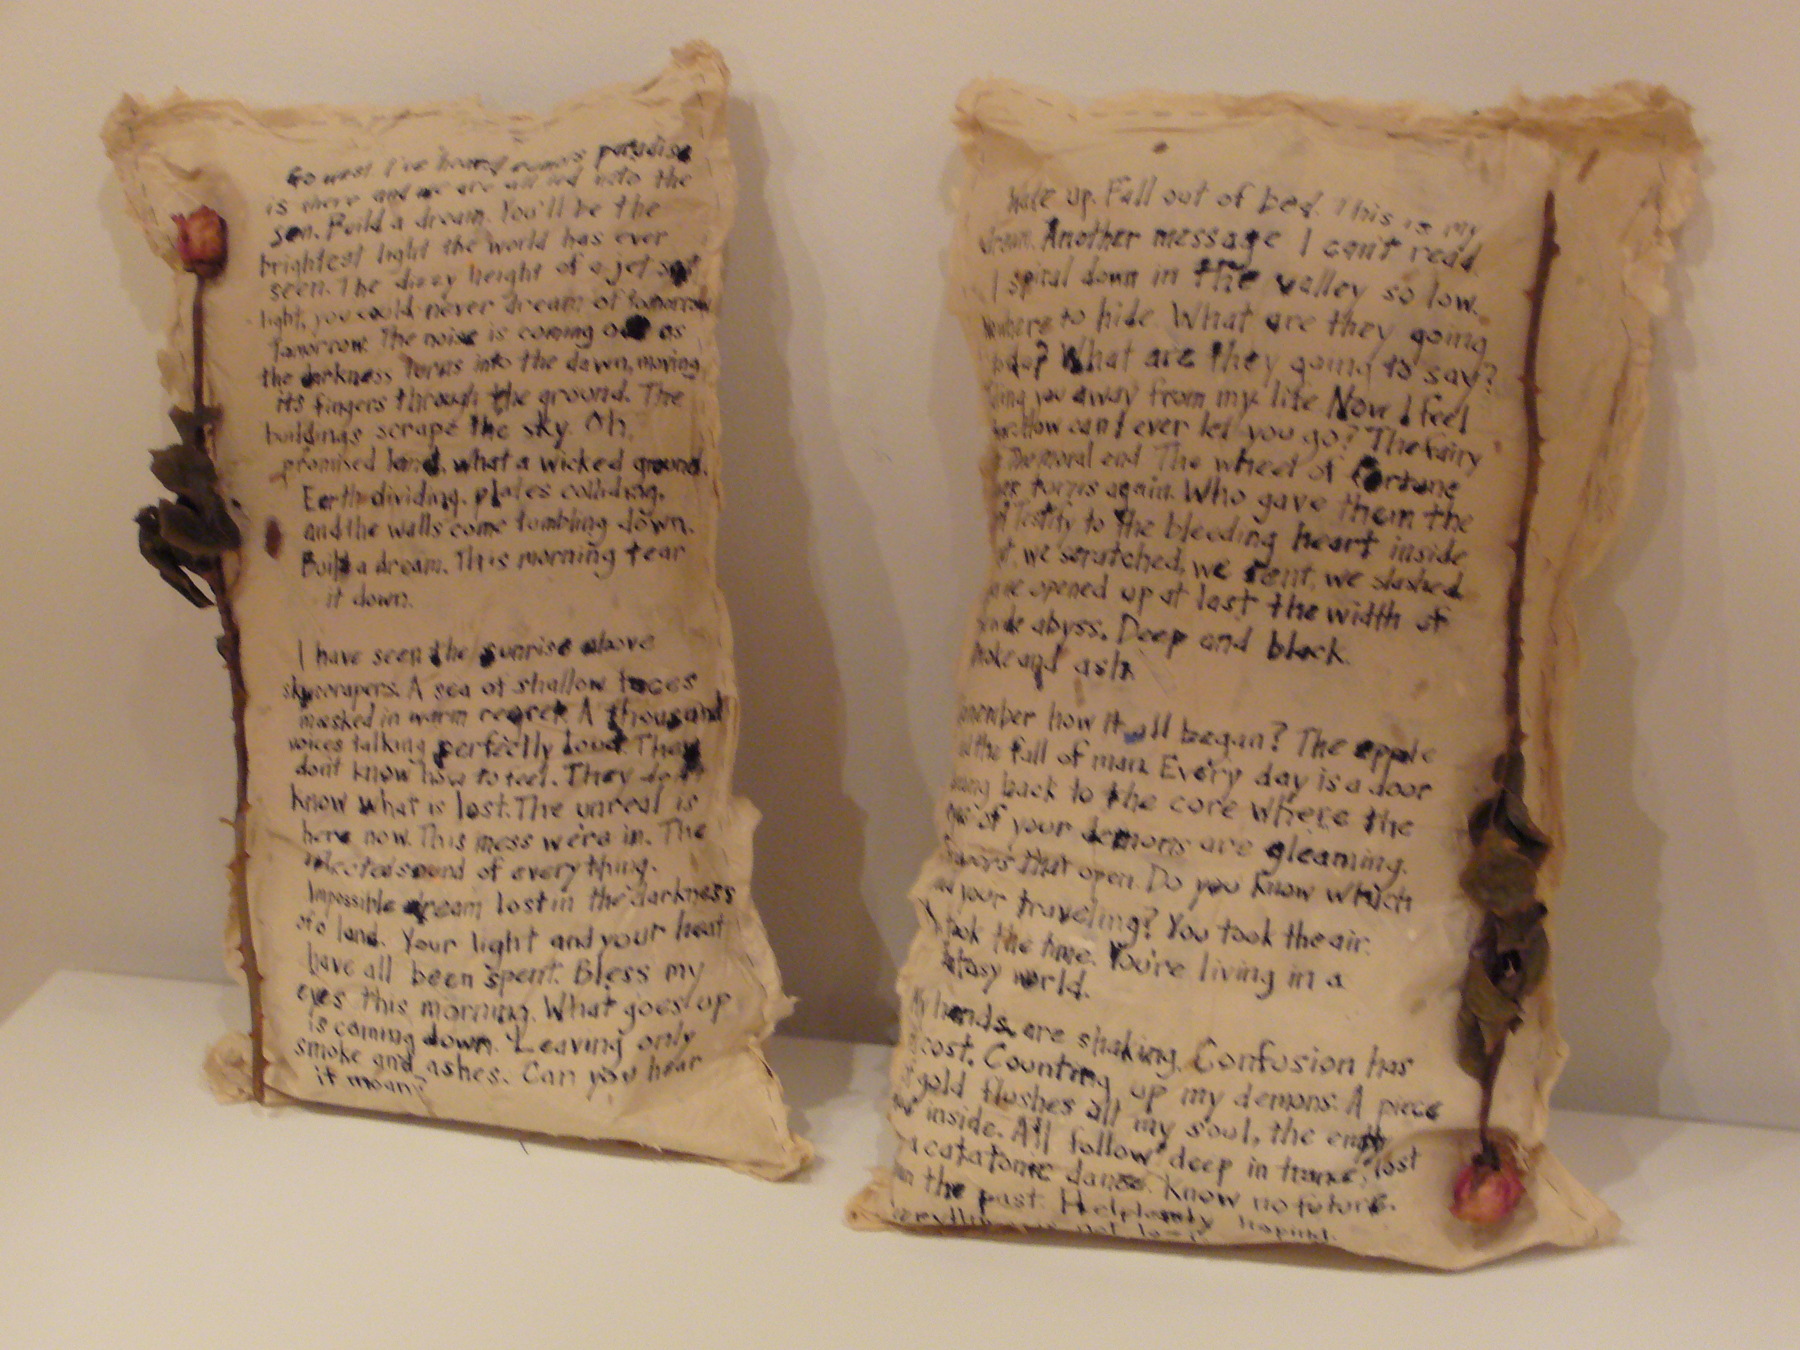 Go west I've heard rumors paradise
is there and we are all led into the
sun. Build a dream. You'll be the
brightest light the world has ever
seen. The dizzy height of a jet set
light, you could never dream of tomorrow
Tomorrow. The noise is coming out as
the darkness turns into the dawn, moving
its fingers through the ground. The
buildings scrape the sky. Oh,
promised land, what a wicked ground.
Earth dividing, plates colliding,
and the walls come tumbling down.
Build a dream. This morning tear
it down.
I have seen the sunrise above
skyscrapers. A sea of shallow faces
masked in warm regret. A thousand
voices talking perfectly loud. They
don't know how to feel. They don't
know what is lost. The unreal is
here now. This mess we're in. The
sound of everything.
Impossible dream lost in the darkness
of a land. Your light and your heat
have all been spent. Bless my
eyes this morning. What goes up
is coming down. Leaving only
smoke and ashes. Can you hear
it moan?
Wake up. Fall out of bed. This is my
Another message I can't read
I spiral down in the valley so low.
to hide. What are they going
What are they going to say?
you away from my life Now I feel
How can I ever let you go? The fairy
The moral end The wheel of fortune
turns again. Who gave them the
Testify to the bleeding heart inside
we scratched, we rent, we slashed
opened up at last the width of
abyss. Deep and black.
and ash
how it all began? The apple
the fall of man. Every day is a door
back to the core where the
of your demons are gleaming.
that open. Do you know which
your traveling? You took the air.
took the time. You're living in a
world.
My hands are shaking. Confusion has
cost. Counting up my demons. A piece
gold flushes all my soul, the empty
inside. All follow deep in trance, lost
a catatonic dance. Know no future.
the past. Helplessly hoping.